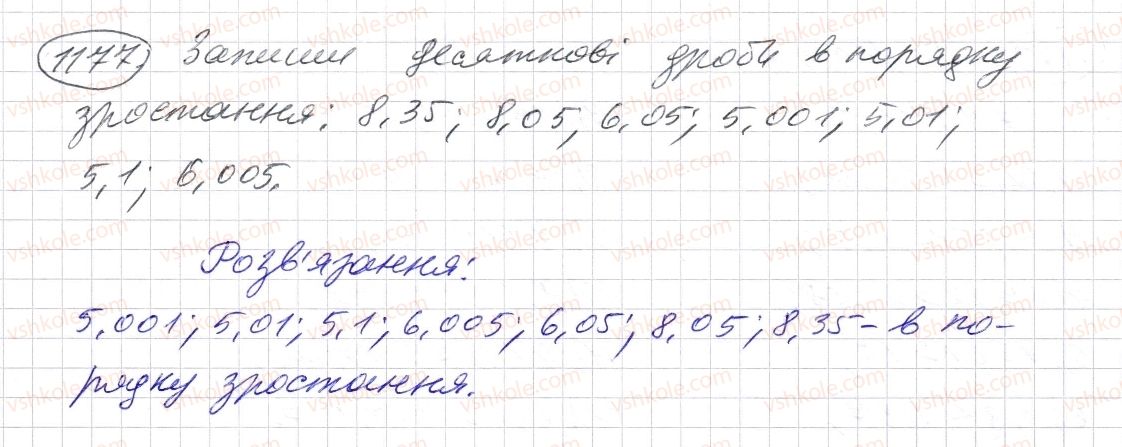 1177 Запиши десяткові дроби в порядку
зростання: 8,35; 8,05; 6,05; 5,001; 5,01;
5,1; 6,005.
Розв'язання:
5,001; 5,01; 5,1; 6,005; 6,05; 8,05; 8,35 – в по-
рядку зростання.